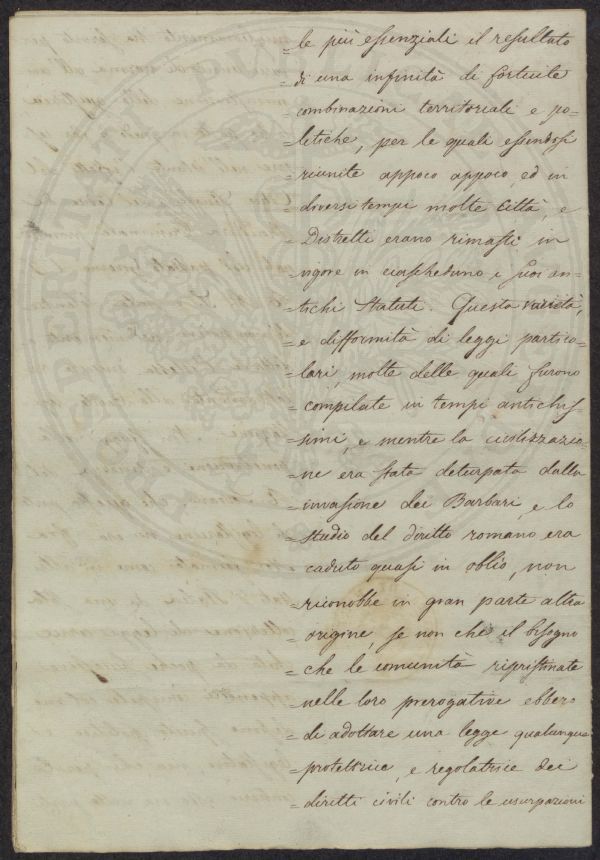 =le più essenziali il resultato
=di una infinità di fortuite
=combinazioni territoriali e po-
=litiche, per le quali essendosi
=riunite appoco appoco, ed in
=diversi tempi molte Città, e
=Distretti erano rimasti in
=vigore in ciascheduno i suoi an-
=tichi Statuti. Questa varietà,
=e difformità di leggi partico-
=lari, molte delle quali furono
=compilate in tempi antichis-
=simi, e mentre la civilizzazio-
=ne era stata deturpata dalla
=invasione dei Barbari, e lo
=studio del diritto romano era
=caduto quasi in oblìo, non
=riconobbe in gran parte altra
=origine, se non che il bisogno
=che le comunità ripristinate
=nelle loro prerogative ebbero
=di adottare una legge qualunque
=protettrice, e regolatrice dei
=diritti civili contro le usurpazioni